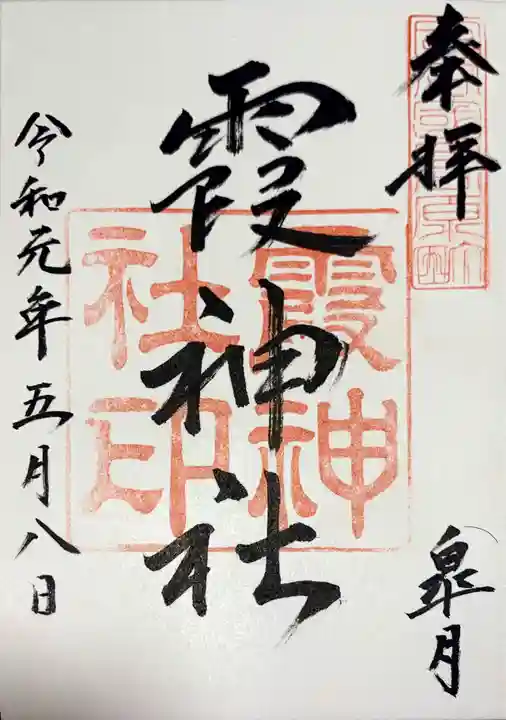 奉拝
皐月
霞神社
霞神社印
令和元年五月八日